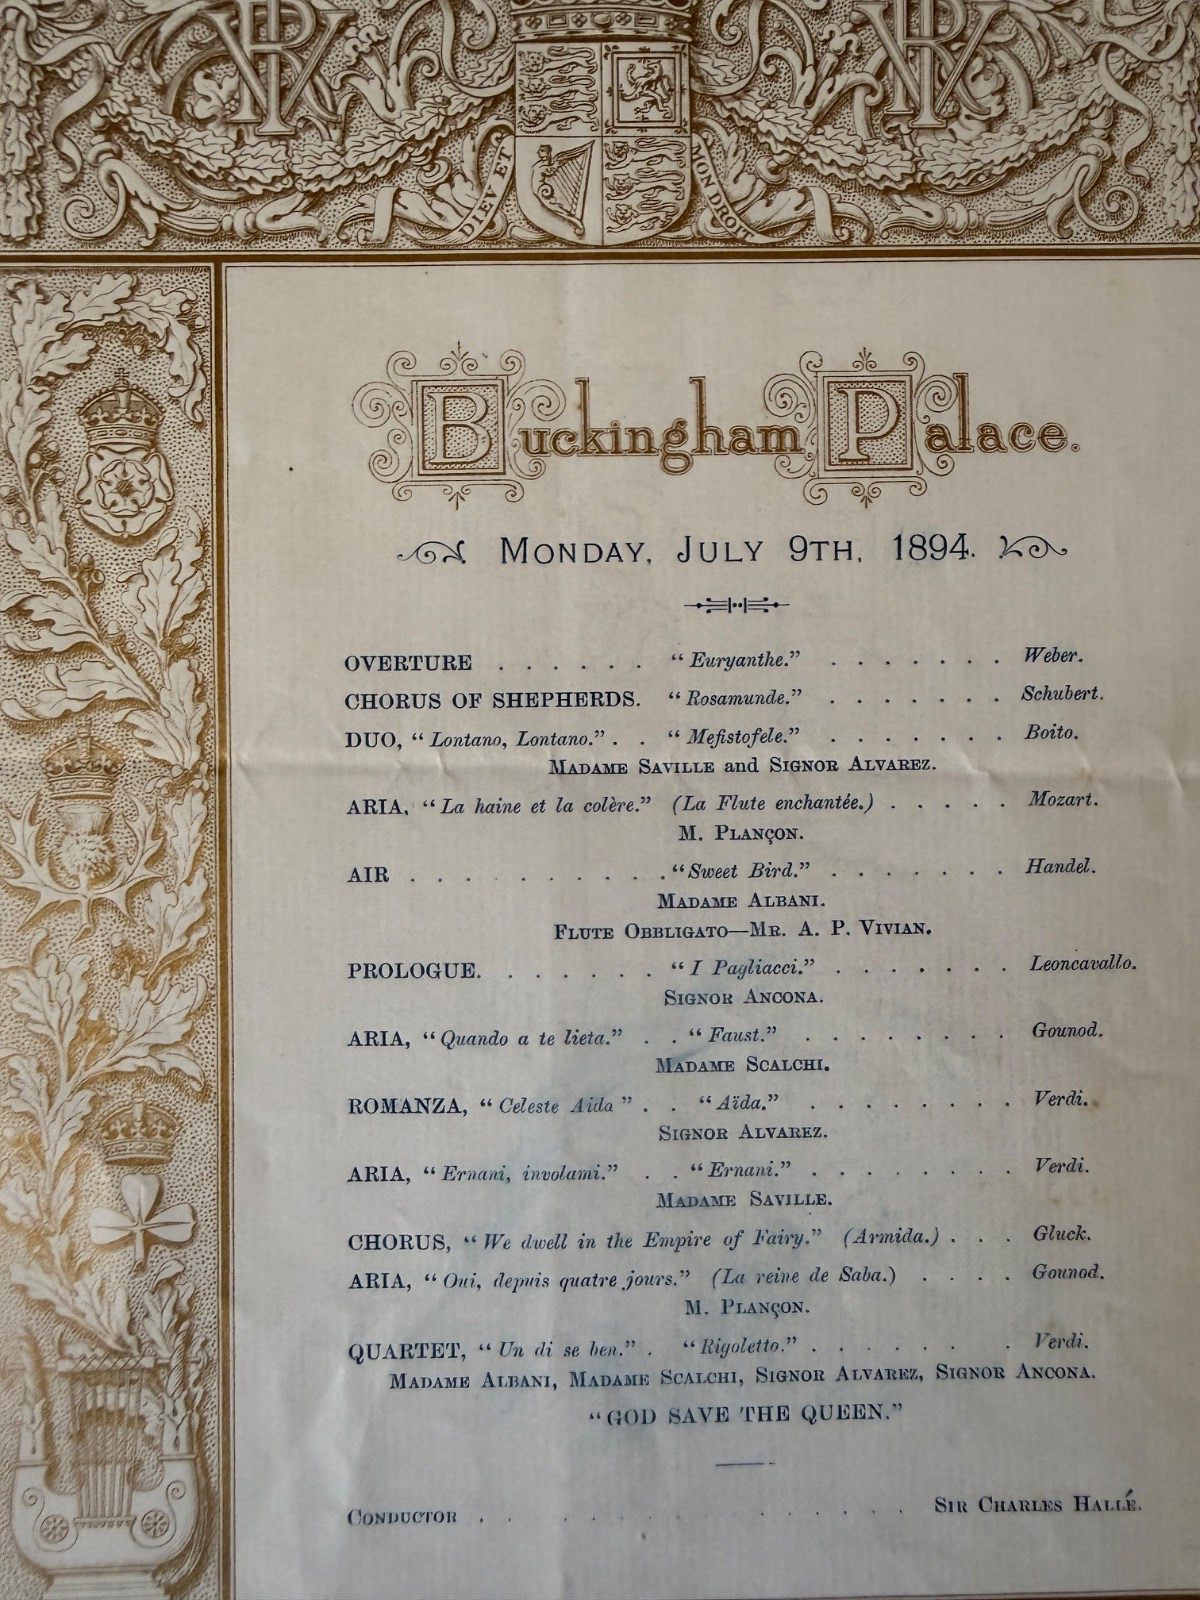 DIEV ET MON DROIT
Buckingham Palace.
MONDAY, JULY 9TH, 1894.
OVERTURE . . . . . . "Euryanthe." . . . . . . . Weber.
CHORUS OF SHEPHERDS. "Rosamunde." . . . . . . . Schubert.
DUO, "Lontano, Lontano." . . "Mefistofele." . . . . . . . Boito.
MADAME SAVILLE and SIGNOR ALVAREZ.
ARIA, "La haine et la colère." (La Flute enchantée.) . . . . . Mozart.
M. PLANÇON.
AIR . . . . . . . . . . "Sweet Bird." . . . . . . . Handel.
MADAME ALBANI.
FLUTE OBBLIGATO—MR. A. P. VIVIAN.
PROLOGUE. . . . . . . "I Pagliacci." . . . . . . . Leoncavallo.
SIGNOR ANCONA.
ARIA, "Quando a te lieta." . . "Faust." . . . . . . . . Gounod.
MADAME SCALCHI.
ROMANZA, "Celeste Aida" . . "Aïda." . . . . . . . . Verdi.
SIGNOR ALVAREZ.
ARIA, "Ernani, involami." . . "Ernani." . . . . . . . . Verdi.
MADAME SAVILLE.
CHORUS, "We dwell in the Empire of Fairy." (Armida.) . . . Gluck.
ARIA, "Oui, depuis quatre jours." (La reine de Saba.) . . . . Gounod.
M. PLANÇON.
QUARTET, "Un di se ben." . "Rigoletto." . . . . . . . Verdi.
MADAME ALBANI, MADAME SCALCHI, SIGNOR ALVAREZ, SIGNOR ANCONA.
"GOD SAVE THE QUEEN."
CONDUCTOR . . . . . . . . . . . . . SIR CHARLES HALLÉ.